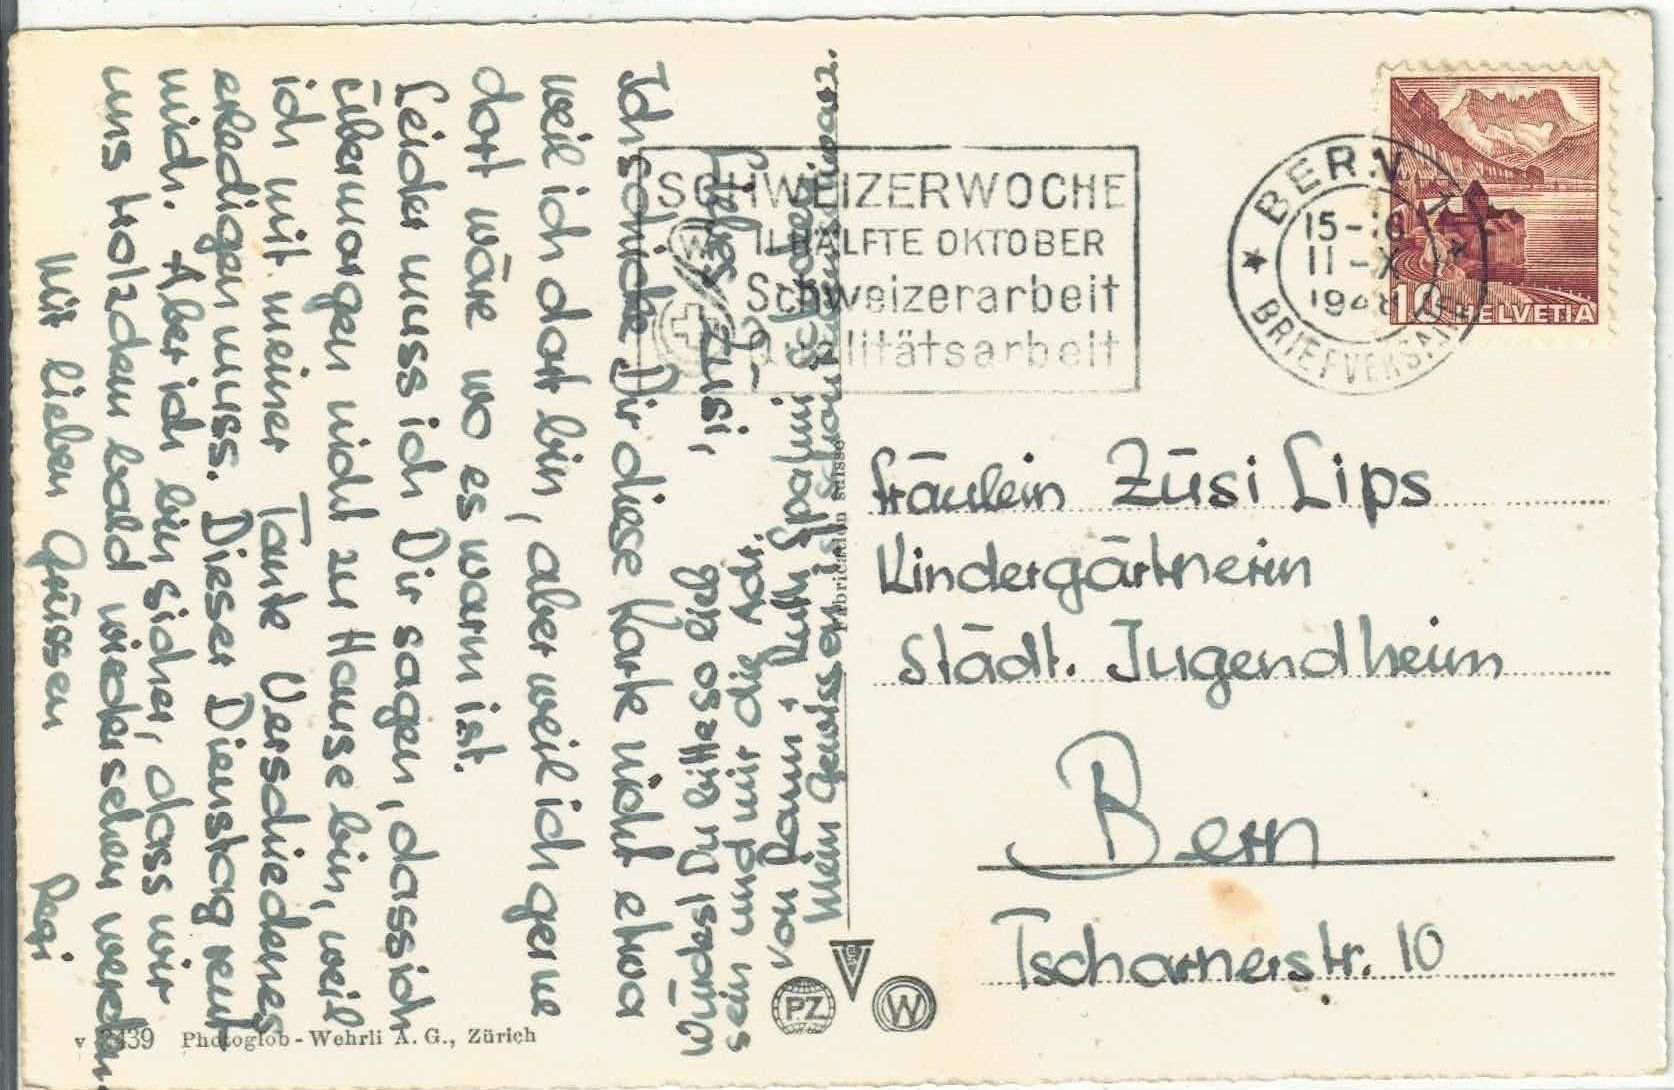 SCHWEIZERWOCHE
II. HÄLFTE OKTOBER
Schweizerarbeit
Qualitätsarbeit
BERN 1
15-
11-X
1948
BRIEFVERSAND
10 HELVETIA
Fräulein Züsi Lips
Kindergärtnerin
Städt. Jugendheim
Bern
Tscharnerstr. 10
Liebes Züsi,
Ich schicke Dir diese Karte nicht etwa
weil ich dort bin, aber weil ich gerne
dort wäre wo es warm ist.
Leider muss ich Dir sagen, dass ich
übermorgen nicht zu Hause bin, weil
ich mit meiner Tante Verschiedenes
erledigen muss. Dieser Dienstag reut
mich. Aber ich bin sicher, dass wir
uns trotzdem bald wiedersehen werden.
Mit lieben Grüssen Regi
Würdest Du bitte so gut
sein und mir die Adr.
von Rami u. Ruth Spahni
Mein Gewissen ist schon
Fabrication suisse
PZ
W
v 2439 Photoglob-Wehrli A. G., Zürich